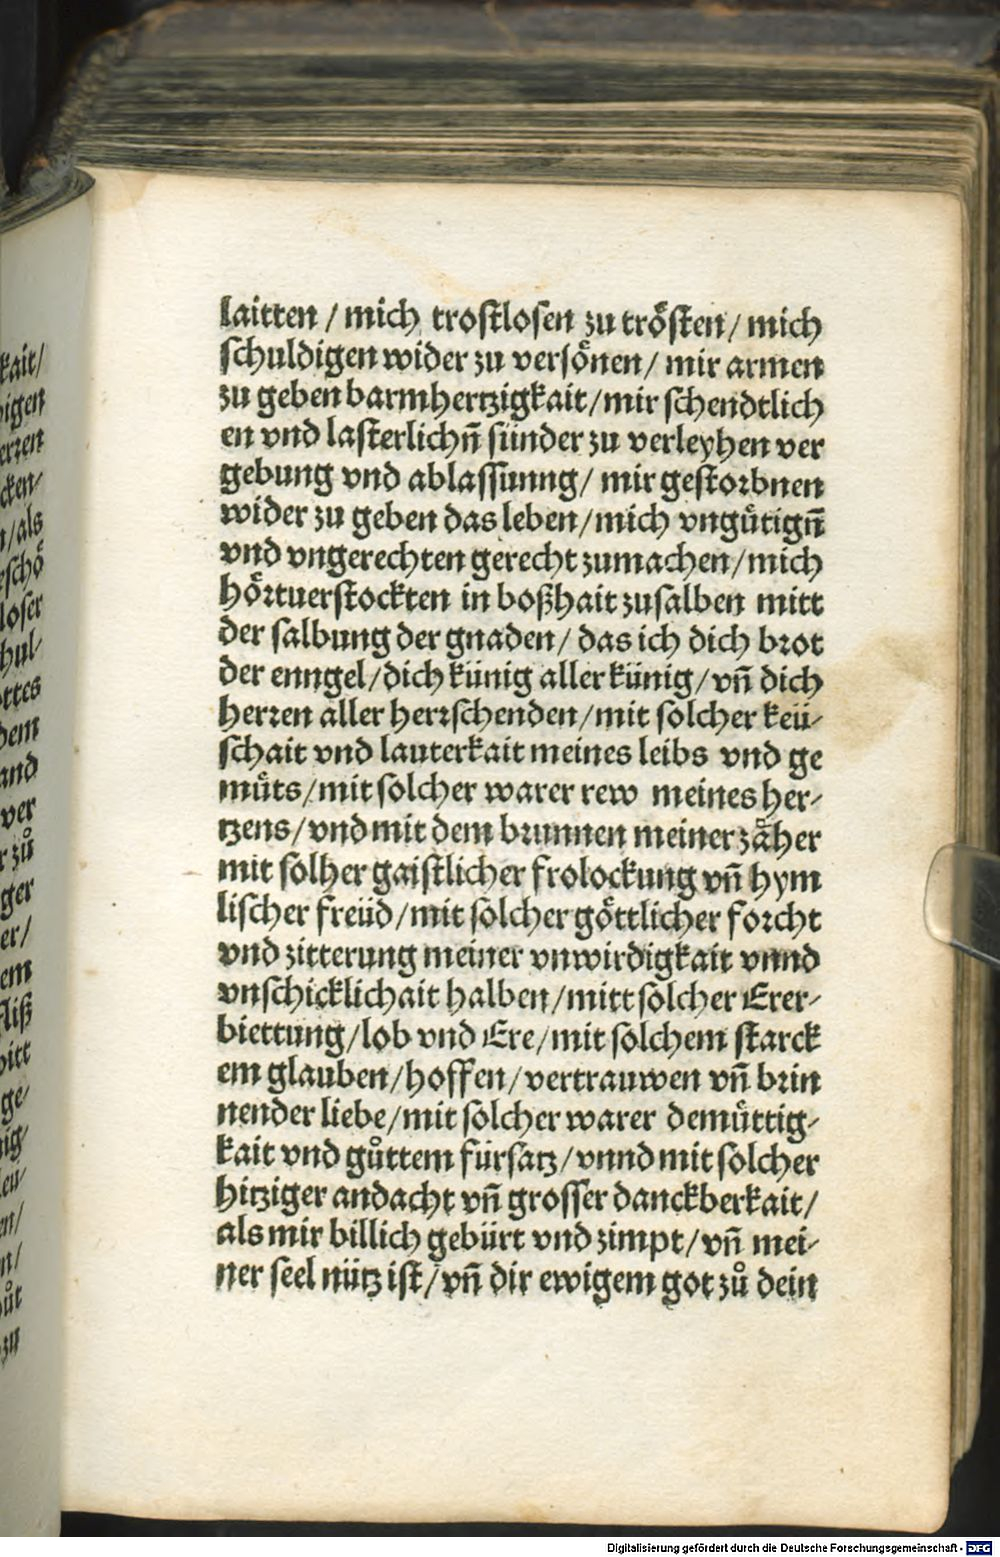 laitten / mich trostlosen zu trösten / mich
schuldigen wider zu versönen / mir armen
zu geben barmhertzigkait / mir schendtlich
en vnd lasterlichn̄ sünder zu verleyhen ver
gebung vnd ablassunng / mir gestorbnen
wider zu geben das leben / mich vngütign̄
vnd vngerechten gerecht zumachen / mich
hörtuerstockten in boßhait zusalben mitt
der salbung der gnaden / das ich dich brot
der enngel / dich künig aller künig / vn̄ dich
herren aller herrschenden / mit solcher keü-
schait vnd lauterkait meines leibs vnd ge
müts / mit solcher warer rew meines her-
tzens / vnd mit dem brunnen meiner zäher
mit solher gaistlicher frolockung vn̄ hym
lischer freüd / mit solcher göttlicher forcht
vnd zitterung meiner vnwirdigkait vnnd
vnschicklichait halben / mitt solcher Erer-
biettung / lob vnd Ere / mit solchem starck
em glauben / hoffen / vertrauwen vn̄ brin
nender liebe / mit solcher warer demüttig-
kait vnd gůttem fürsatz / vnnd mit solcher
hitziger andacht vn̄ grosser danckberkait /
als mir billich gebürt vnd zimpt / vn̄ mei-
ner seel nütz ist / vn̄ dir ewigem got zů dein
kait /
als
loser
hul-
ottes
dem
and
ver
zů
ger
er /
em
fliß
bitt
ge-
zu
Digitalisierung gefördert durch die Deutsche Forschungsgemeinschaft - DFG